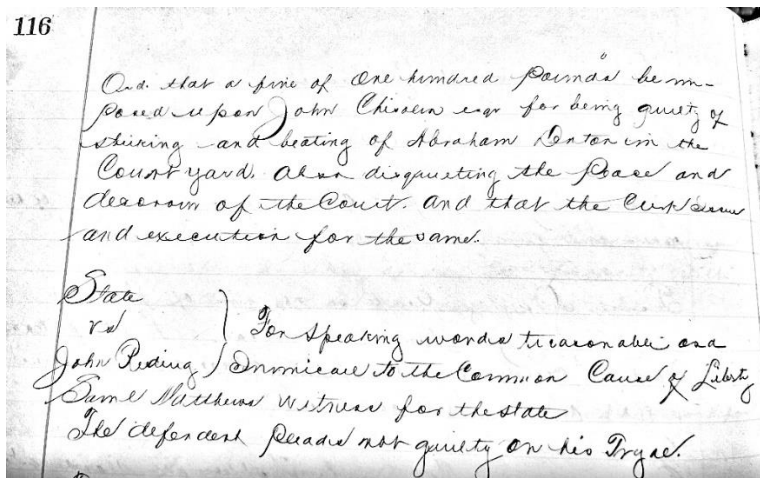 116
Ord. that a fine of One hundred Pounds be im-
posed upon John Chisolm esqr for being guilty of
striking and beating of Abraham Denton in the
Court yard. Also disquieting the Peace and
decorum of the Court. And that the Clerk issue
and execution for the same.
State
vs
John Reding } For speaking words treasonable and
Inimical to the Common Cause of Liberty
Saml Matthews witness for the state
The defendent pleads not guilty on his Tryal.